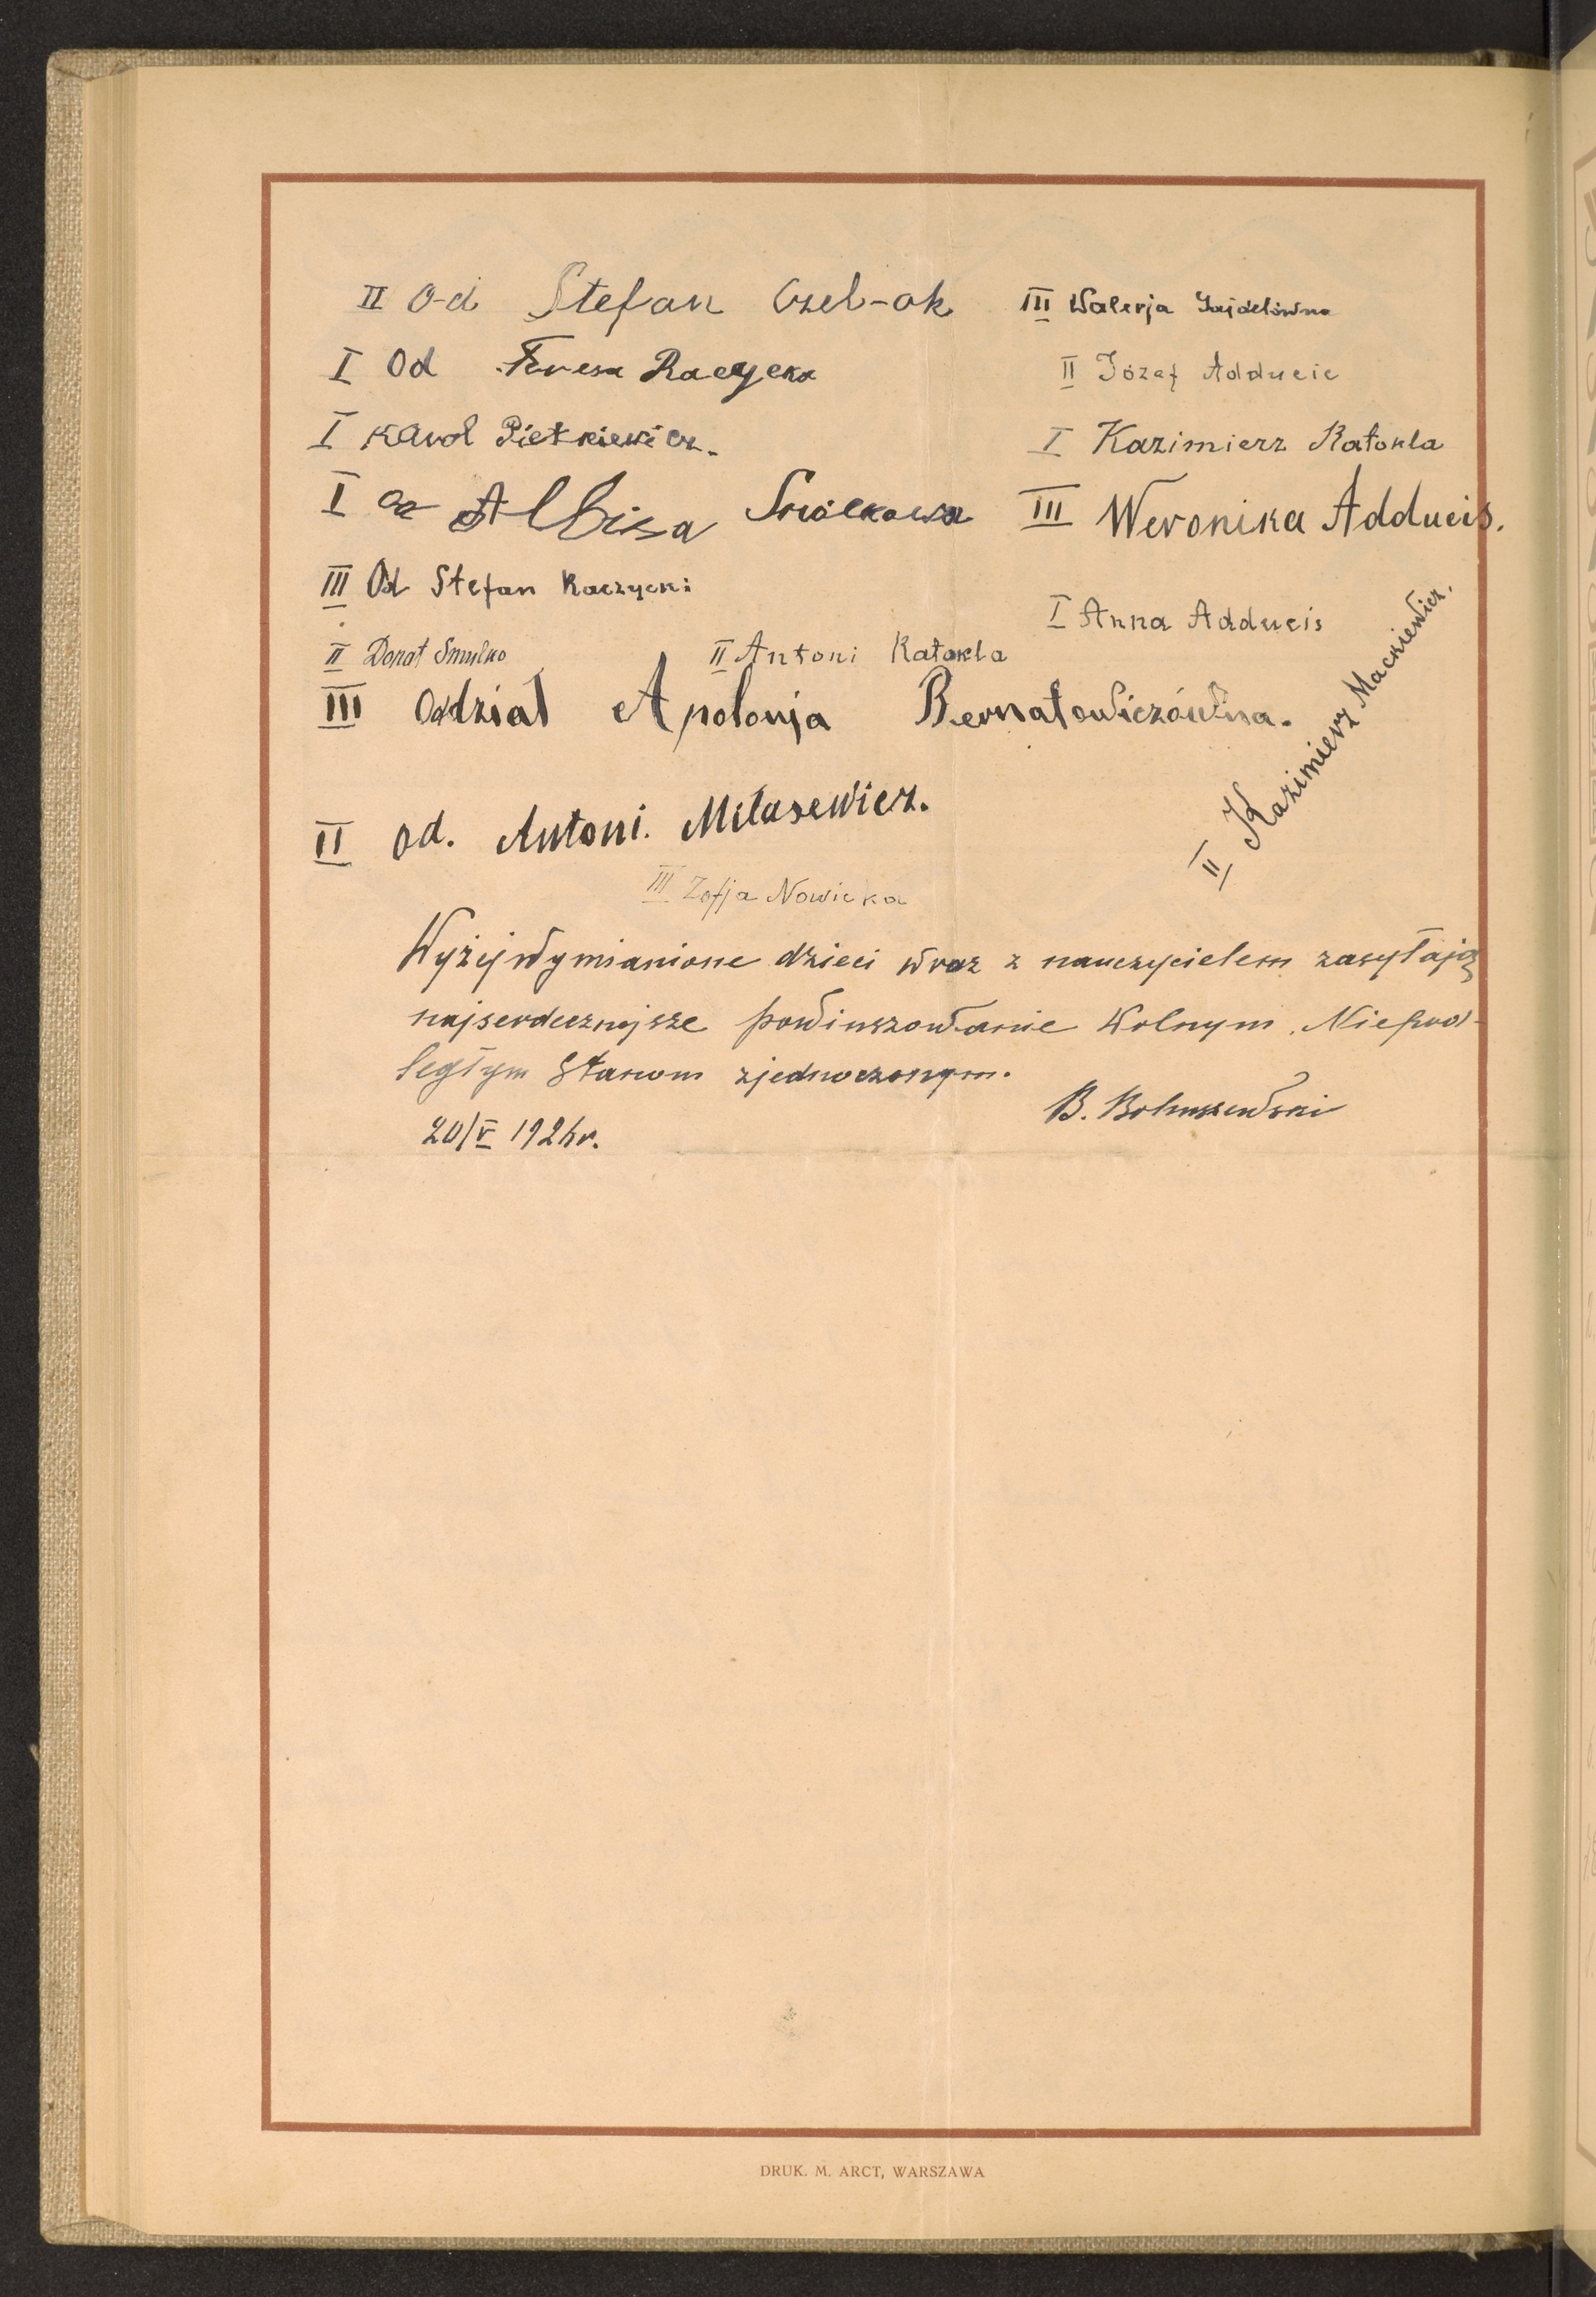 II Od Stefan Czeb-ak
III Walerja Gajdelówna
I Od Teresa Raczycka
II Józef Adducic
I Karol Pietkiewicz.
I Kazimierz Katokla
I Od Albina
III Weronika Adducis.
III Od Stefan Raczycki
I Anna Adducis
II Donat Smulko
II Antoni Katokla
III Oddział Apolonja Bernatowiczówna.
II Kazimierz Mackiewicz.
II Od. Antoni. Milasewicz.
III Zofja Nowicka
Wyżejwymianione dzieci wraz z nauczycielem zasyłają
najserdeczniejsze powinszowanie Wolnym, Niepod-
ległym Stanom zjednoczonym.
B. Bohuszewski
20/V 1926r.
DRUK. M. ARCT, WARSZAWA